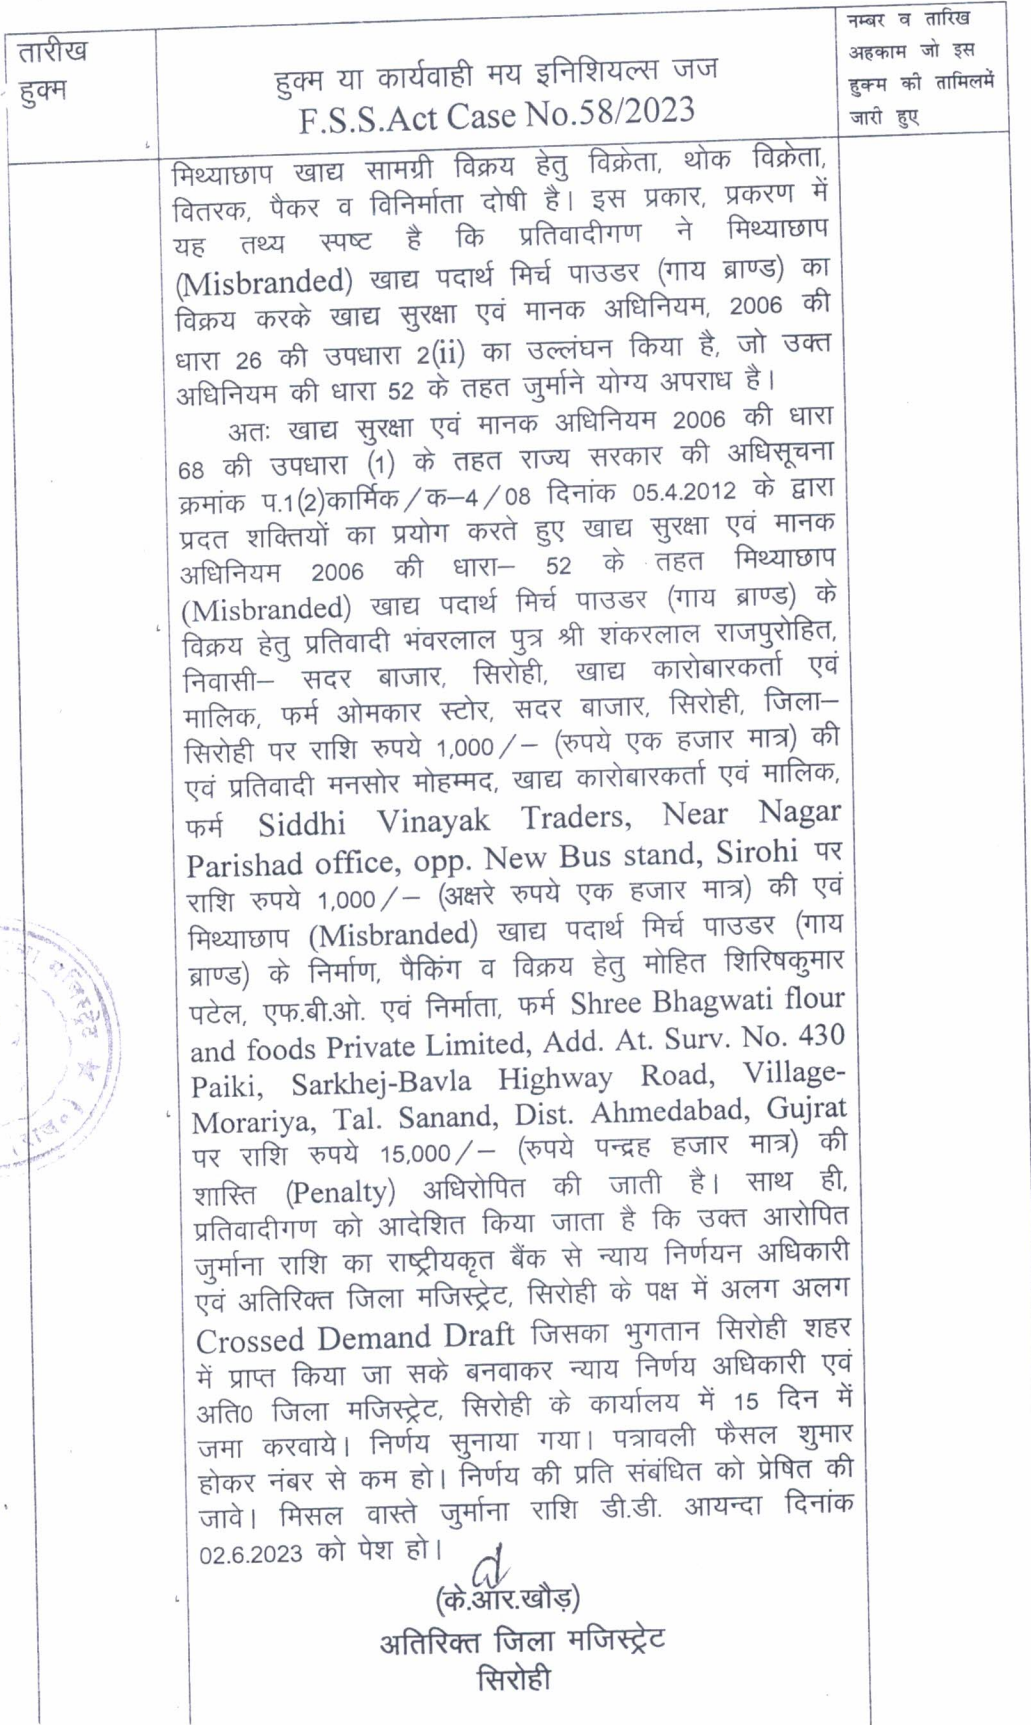 तारीख
हुक्म
हुक्म या कार्यवाही मय इनिशियल्स जज
F.S.S.Act Case No.58/2023
नम्बर व तारिख
अहकाम जो इस
हुक्म की तामिलमें
जारी हुए
मिथ्याछाप खाद्य सामग्री विक्रय हेतु विक्रेता, थोक विक्रेता,
वितरक, पैकर व विनिर्माता दोषी है। इस प्रकार, प्रकरण में
यह तथ्य स्पष्ट है कि प्रतिवादीगण ने मिथ्याछाप
(Misbranded) खाद्य पदार्थ मिर्च पाउडर (गाय ब्राण्ड) का
विक्रय करके खाद्य सुरक्षा एवं मानक अधिनियम, 2006 की
धारा 26 की उपधारा 2(ii) का उल्लंघन किया है, जो उक्त
अधिनियम की धारा 52 के तहत जुर्माने योग्य अपराध है।
अतः खाद्य सुरक्षा एवं मानक अधिनियम 2006 की धारा
68 की उपधारा (1) के तहत राज्य सरकार की अधिसूचना
क्रमांक प.1(2)कार्मिक/क–4/08 दिनांक 05.4.2012 के द्वारा
प्रदत शक्तियों का प्रयोग करते हुए खाद्य सुरक्षा एवं मानक
अधिनियम 2006 की धारा– 52 के तहत मिथ्याछाप
(Misbranded) खाद्य पदार्थ मिर्च पाउडर (गाय ब्राण्ड) के
विक्रय हेतु प्रतिवादी भंवरलाल पुत्र श्री शंकरलाल राजपुरोहित,
निवासी– सदर बाजार, सिरोही, खाद्य कारोबारकर्ता एवं
मालिक, फर्म ओमकार स्टोर, सदर बाजार, सिरोही, जिला–
सिरोही पर राशि रुपये 1,000/– (रुपये एक हजार मात्र) की
एवं प्रतिवादी मनसोर मोहम्मद, खाद्य कारोबारकर्ता एवं मालिक,
फर्म Siddhi Vinayak Traders, Near Nagar
Parishad office, opp. New Bus stand, Sirohi पर
राशि रुपये 1,000/– (अक्षरे रुपये एक हजार मात्र) की एवं
मिथ्याछाप (Misbranded) खाद्य पदार्थ मिर्च पाउडर (गाय
ब्राण्ड) के निर्माण, पैकिंग व विक्रय हेतु मोहित शिरिषकुमार
पटेल, एफ.बी.ओ. एवं निर्माता, फर्म Shree Bhagwati flour
and foods Private Limited, Add. At. Surv. No. 430
Paiki, Sarkhej-Bavla Highway Road, Village-
Morariya, Tal. Sanand, Dist. Ahmedabad, Gujrat
पर राशि रुपये 15,000/– (रुपये पन्द्रह हजार मात्र) की
शास्ति (Penalty) अधिरोपित की जाती है। साथ ही,
प्रतिवादीगण को आदेशित किया जाता है कि उक्त आरोपित
जुर्माना राशि का राष्ट्रीयकृत बैंक से न्याय निर्णयन अधिकारी
एवं अतिरिक्त जिला मजिस्ट्रेट, सिरोही के पक्ष में अलग अलग
Crossed Demand Draft जिसका भुगतान सिरोही शहर
में प्राप्त किया जा सके बनवाकर न्याय निर्णय अधिकारी एवं
अति0 जिला मजिस्ट्रेट, सिरोही के कार्यालय में 15 दिन में
जमा करवाये। निर्णय सुनाया गया। पत्रावली फैसल शुमार
होकर नंबर से कम हो। निर्णय की प्रति संबंधित को प्रेषित की
जावे। मिसल वास्ते जुर्माना राशि डी.डी. आयन्दा दिनांक
02.6.2023 को पेश हो।
(के.आर.खौड़)
अतिरिक्त जिला मजिस्ट्रेट
सिरोही